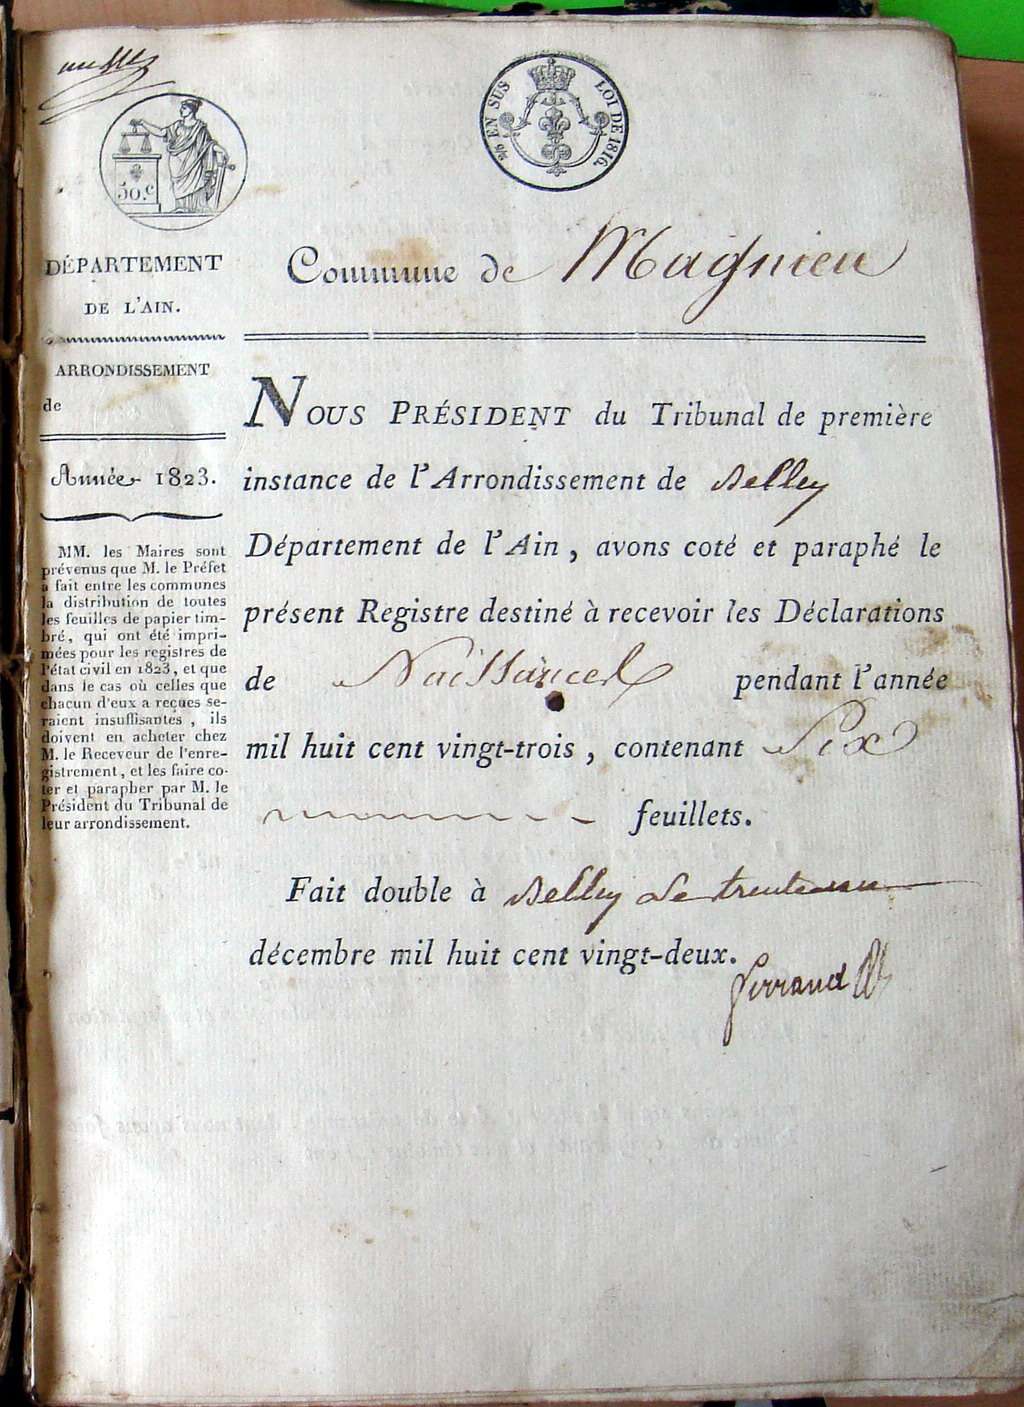 50.c
EN SUS
LOI DE 1816.
DÉPARTEMENT
DE L'AIN.
ARRONDISSEMENT
de
Année 1823.
MM. les Maires sont
prévenus que M. le Préfet
a fait entre les communes
la distribution de toutes
les feuilles de papier tim-
bré, qui ont été impri-
mées pour les registres de
l'état civil en 1823, et que
dans le cas où celles que
chacun d'eux a reçues se-
raient insuffisantes, ils
doivent en acheter chez
M. le Receveur de l'enre-
gistrement, et les faire co-
ter et parapher par M. le
Président du Tribunal de
leur arrondissement.
Commune de Magnieu
NOUS PRÉSIDENT du Tribunal de première
instance de l'Arrondissement de Belley
Département de l'Ain, avons coté et paraphé le
présent Registre destiné à recevoir les Déclarations
de Naissances pendant l'année
mil huit cent vingt-trois, contenant Six
feuillets.
Fait double à Belley le trente un
décembre mil huit cent vingt-deux.
ferrand